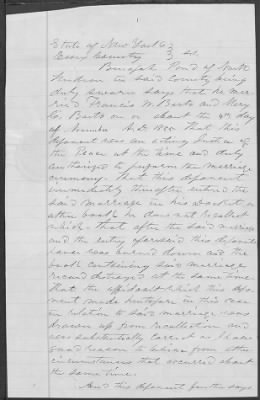 State of New York }
Essex County } ss.
Benajah Pond of North
Hudson in said County being
duly sworn says that he mar-
ried Francis W. Barto and Mary
Barto on or about the 4th day
of A.D. 1855 that this
deponent was an acting Justice of
the Peace at the time and duly
authorized to perform the marriage
ceremony. That this deponent
immediately thereafter entered the
said marriage in his docket or
other book he does not recollect
which - that after the said marriage
and the entry aforesaid this deponents
house was burned down and the
book containing said marriage
record destroyed at the same time
that the affidavit which this depo-
nent made heretofore in this case
in relation to said marriage was
drawn up from recollection and
was substantially correct as he has
good reason to believe from other
circumstances that occurred about
the same time.
And this deponent further says